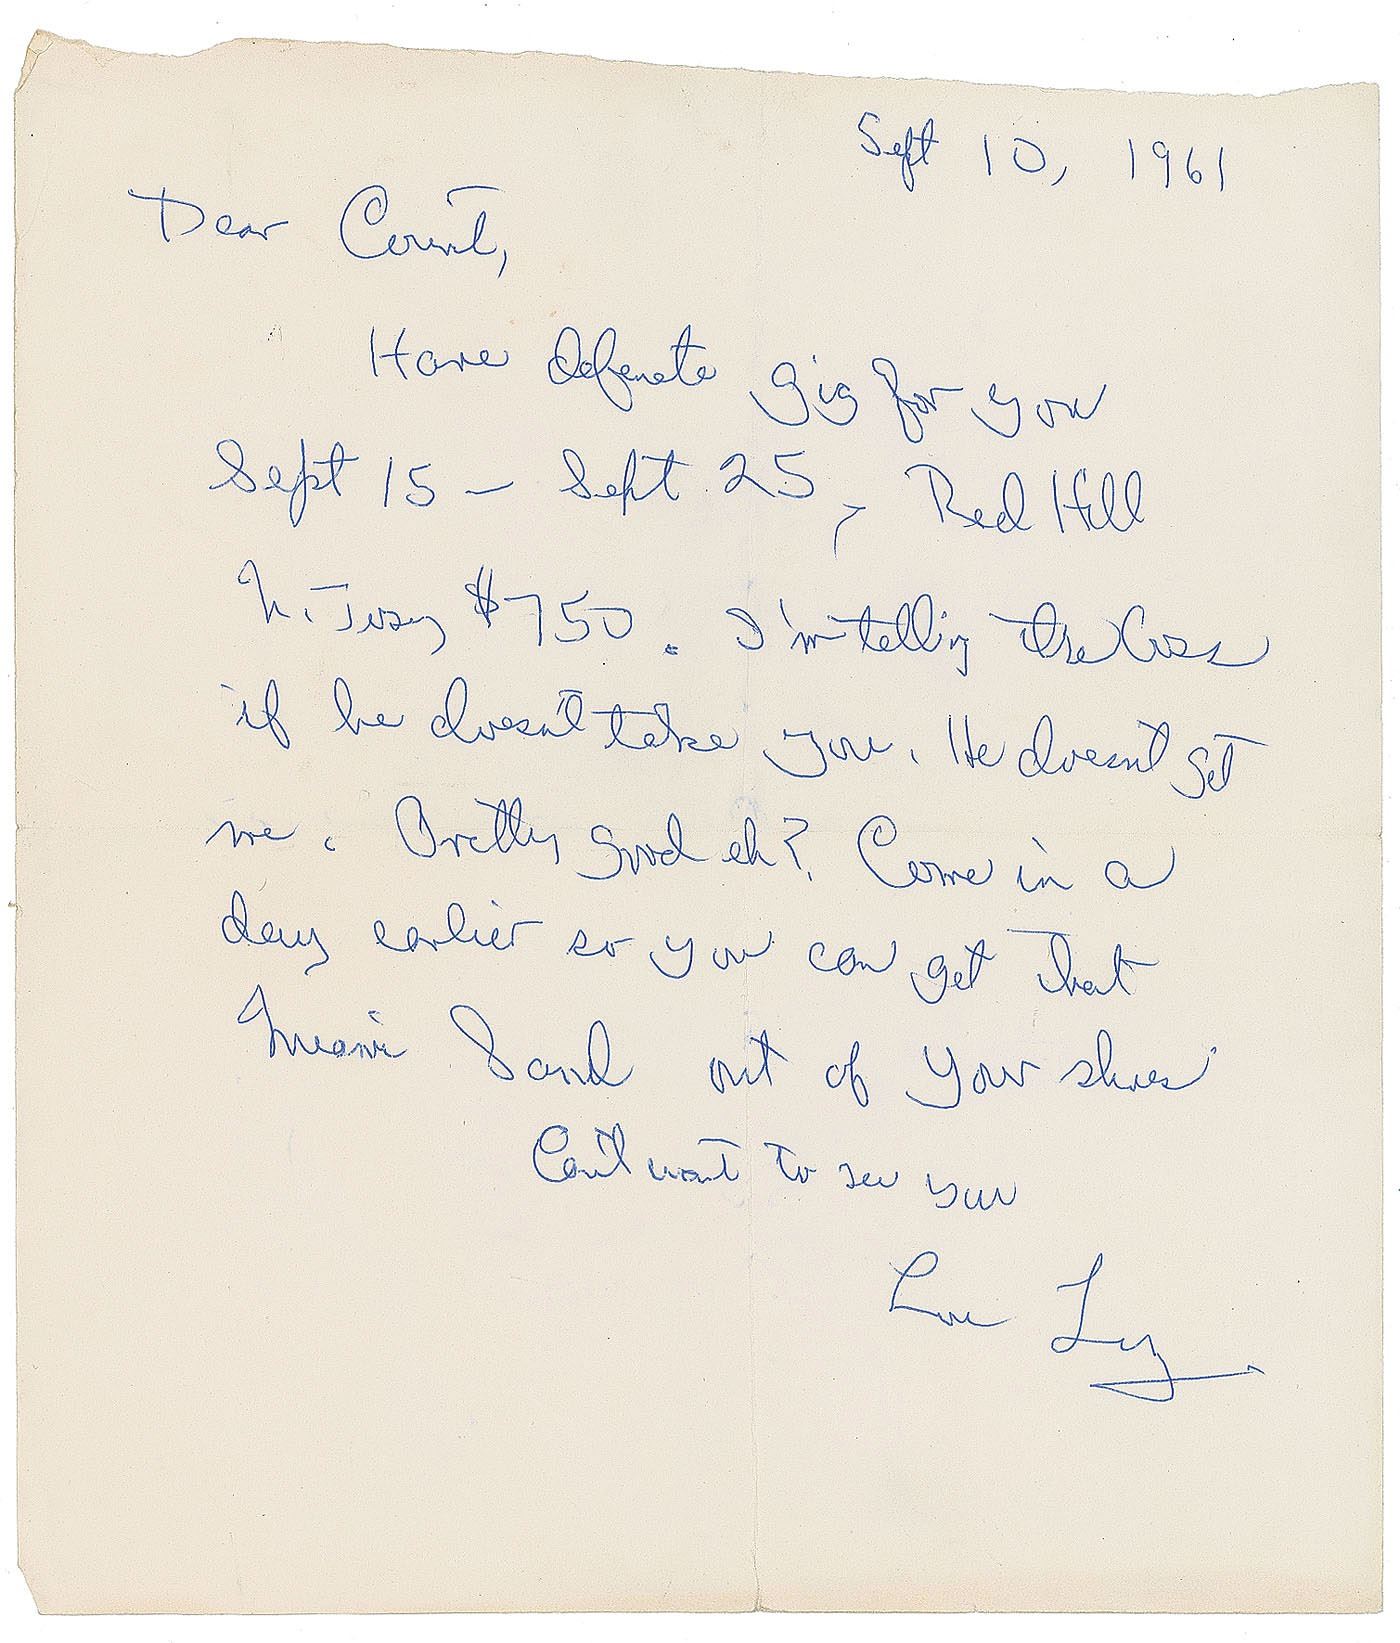 Sept 10, 1961
Dear Count,
Have defenate gig for you
Sept 15 – Sept 25, Red Hill
N. Jersy $750. I'm telling the boss
if he doesn't take you. He doesn't get
me. Pretty good eh? Come in a
day earlier so you can get that
Miami Sand out of your shoes
Can't wait to see you
Love Liz